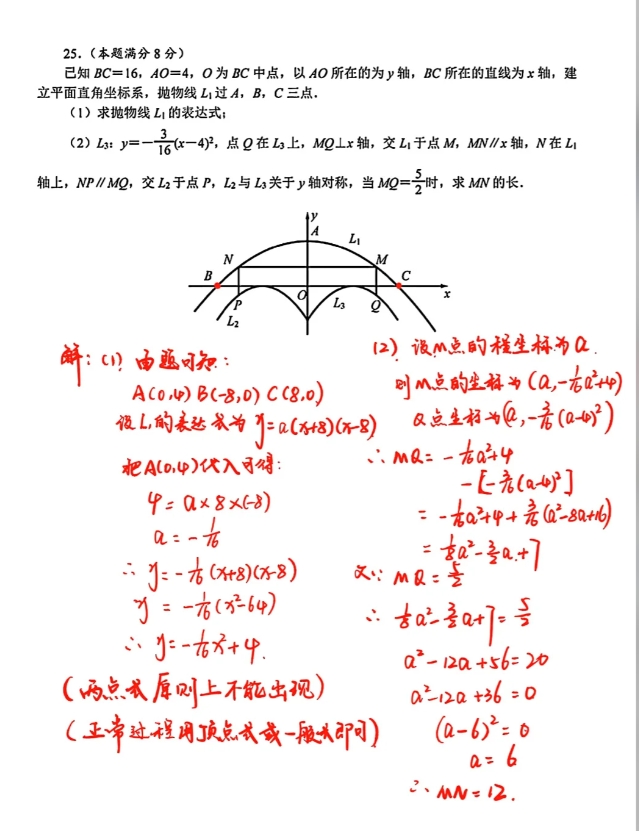 25.(本题满分8分)
已知BC=16,AO=4,O为BC中点,以AO所在的为y轴,BC所在的直线为x轴,建
立平面直角坐标系,抛物线L₁过A,B,C三点.
(1)求抛物线L₁的表达式;
(2)L₃:y=-3/16(x-4)²,点Q在L₃上,MQ⊥x轴,交L₁于点M,MN//x轴,N在L₁
轴上,NP//MQ,交L₂于点P,L₂与L₃关于y轴对称,当MQ=5/2时,求MN的长.
y
A
L₁
N
M
B
C
O
x
P
L₃
Q
L₂
解:(1)由题可知:
A(0,4) B(-8,0) C(8,0)
设L₁的表达式为y=a(x+8)(x-8)
把A(0,4)代入可得:
4=a×8×(-8)
a=-1/16
∴y=-1/16(x+8)(x-8)
y=-1/16(x²-64)
∴y=-1/16x²+4.
(两点式原则上不能出现)
(正常过程用顶点式或一般式即可)
(2)设M点的横坐标为a.
则M点的坐标为(a,-1/16a²+4)
Q点坐标为(a,-3/16(a-4)²)
∴MQ=-1/16a²+4
-[-3/16(a-4)²]
=-1/16a²+4+3/16(a²-8a+16)
=1/8a²-3/2a+7
又∵MQ=5/2
∴1/8a²-3/2a+7=5/2
a²-12a+56=20
a²-12a+36=0
(a-6)²=0
a=6
∴MN=12.